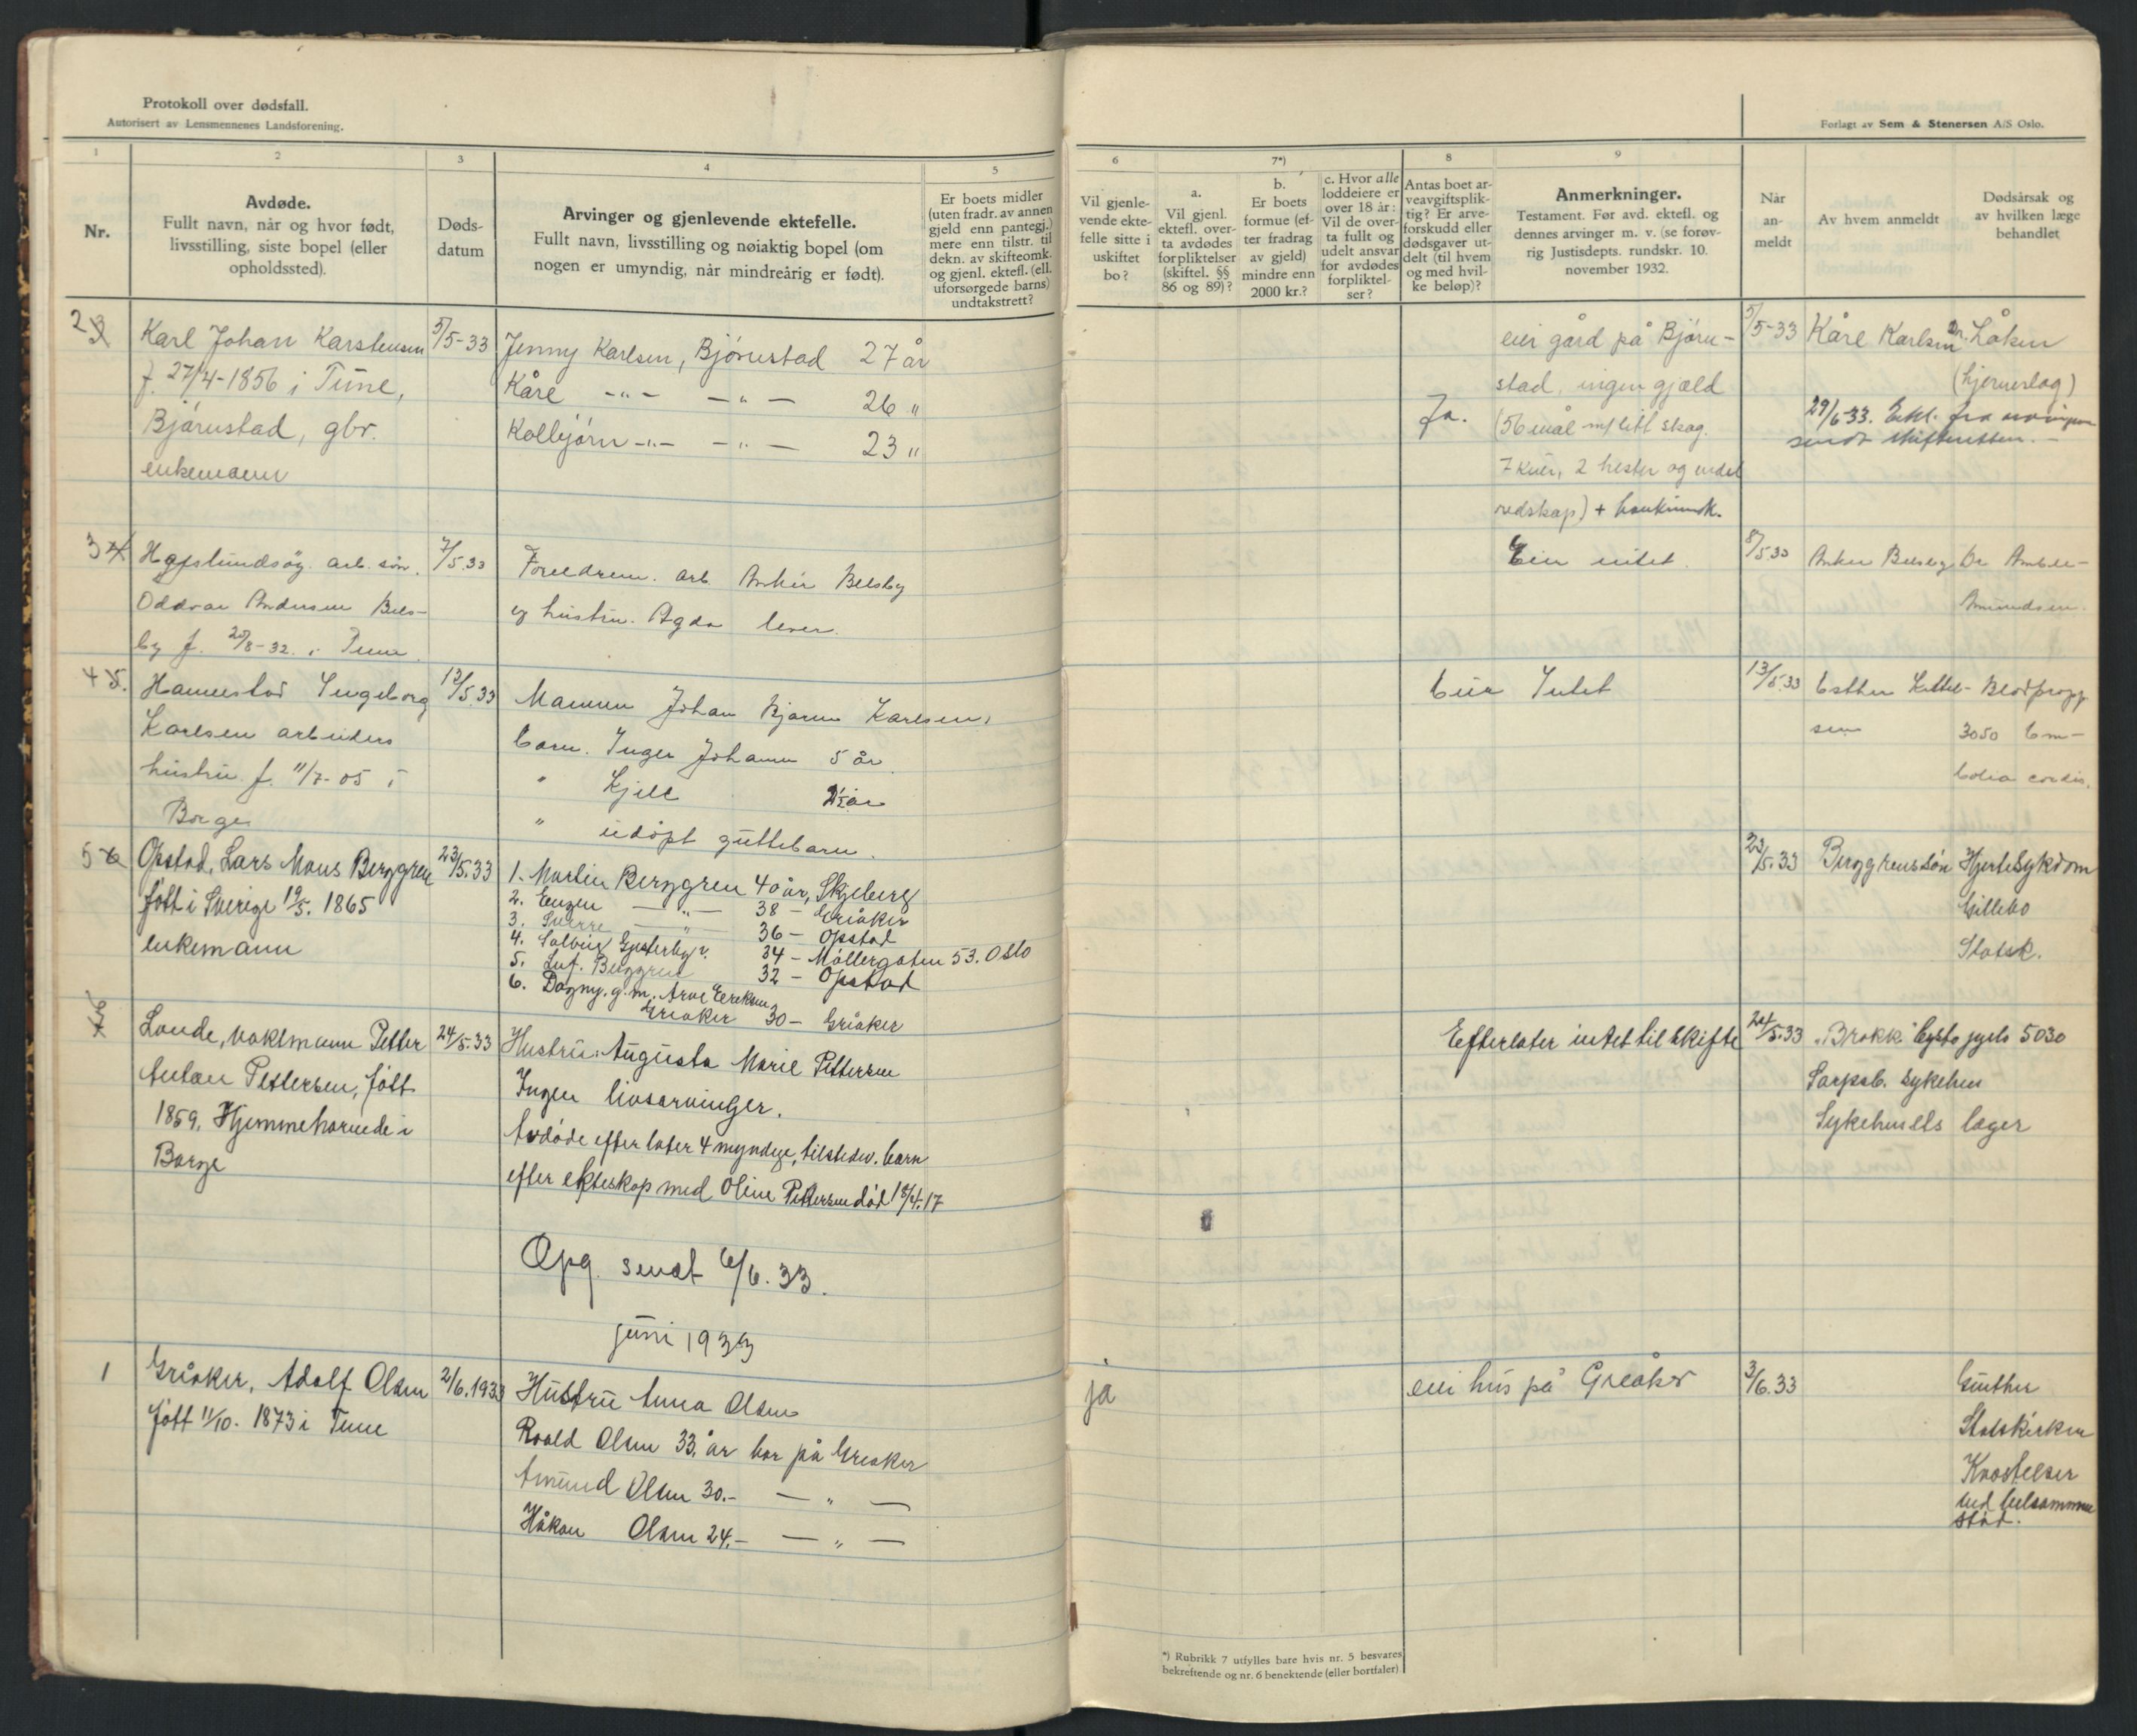 Protokoll over dødsfall.
Autorisert av Lensmennenes Landsforening.
1
2
3
4
5
Nr.
Avdøde.
Fullt navn, når og hvor født,
livsstilling, siste bopel (eller
opholdssted).
Døds-
datum
Arvinger og gjenlevende ektefelle.
Fullt navn, livsstilling og nøiaktig bopel (om
nogen er umyndig, når mindreårig er født).
Er boets midler
(uten fradr. av annen
gjeld enn pantegj.)
mere enn tilstr. til
dekn. av skifteomk.
og gjenl. ektefl. (ell.
uforsørgede barns)
undtakstrett?
2
Karl Johan Karstensen
f. 27/4-1856 i Tune,
Bjørnstad, gbr.
enkemann
5/5-33
Jenny Karlsen, Bjørnstad 27 år
Kåre -"- -"- 26 "
Kolbjørn -"- -"- 23 "
3
Hafslundsøy. arb. søn.
Oddvar Andersen Bels-
by f. 20/8-32. i Tune.
7/5.33
Foreldrene. arb. Anker Belsby
og hustru. Agda lever.
4
Hannestad Ingeborg
Karlsen arbeiders
hustru f. 11/7-05 i
Borge
13/5.33
Mannen Johan Bjarne Karlsen,
barn. Inger Johanne 5 år
" Kjell
" udøpt guttebarn.
5
Opstad, Lars Mons Berggren
født i Sverige 19/5. 1865
enkemann
23/5.33
1. Martin Berggren 40 år, Skjeberg
2. Eugen -"- 38 - Greåker
3. Sverre -"- 36 - Opstad
4. Solveig 34 - Møllergaten 53. Oslo
5. Berggren 32 - Opstad
6. Dagny. g.m. Arne Eriksen,
Greåker 30 - Greåker
6
Lande, vaktmann Petter
Anton Pettersen, født
1859. Hjemmehørende i
Borge
24/5.33
Hustru: Augusta Marie Pettersen
Ingen livsarvinger.
Avdøde efterlater 4 myndige, tilstedev. barn
efter ekteskap med Oline Pettersen død 18/4.17
Opg. sendt 6/6. 33.
juni 1933
1
Greåker, Adolf Olsen
født 11/10. 1873 i Tune
2/6.1933
Hustru Anna Olsen
Roald Olsen 33. år bor på Greåker
Amund Olsen 30.- - " -
Håkon Olsen 24.- - " -
Forlagt av Sem & Stenersen A/S Oslo.
6
7*)
8
9
Vil gjenle-
vende ekte-
felle sitte i
uskiftet
bo?
a.
Vil gjenl.
ektefl. over-
ta avdødes
forpliktelser
(skiftel. §§
86 og 89)?
b.
Er boets
formue (ef-
ter fradrag
av gjeld)
mindre enn
2000 kr.?
c. Hvor alle
loddeiere er
over 18 år:
Vil de over-
ta fullt og
udelt ansvar
for avdødes
forpliktel-
ser?
Antas boet ar-
veavgiftsplik-
tig? Er arve-
forskudd eller
dødsgaver ut-
delt (til hvem
og med hvil-
ke beløp)?
Anmerkninger.
Testament. Før avd. ektefl. og
dennes arvinger m. v. (se forøv-
rig Justisdepts. rundskr. 10.
november 1932.
Når
an-
meldt
Av hvem anmeldt
Dødsårsak og
av hvilken læge
behandlet
Ja.
eier gård på Bjørn-
stad, ingen gjæld
(56 mål m/ litt skog.
7 kuer, 2 hester og endel
redskap) +
5/5-33
Kåre Karlsen
Dr. Låken
(hjerneslag)
29/6-33. Erkl. fra
sendt skifteretten.
Eier intet.
8/5.33
Anker Belsby
Dr.
Amundsen.
Eier Intet
13/5.33
Esther Kittel-
sen
Blodpropp
3050 Em-
bolia cordis.
23/5.33
Berggrens søn
Hjertesykdom
Gillebo
Statsk.
Efterlater intet til skifte
24/5.33
5030
Sarpsb. sykehus
Sykehusets læger
ja
eier hus på Greåker
3/6.33
Günther
Statskirken
Kvæstelser
ved
*) Rubrikk 7 utfylles bare hvis nr. 5 besvares
bekreftende og nr. 6 benektende (eller bortfaler)